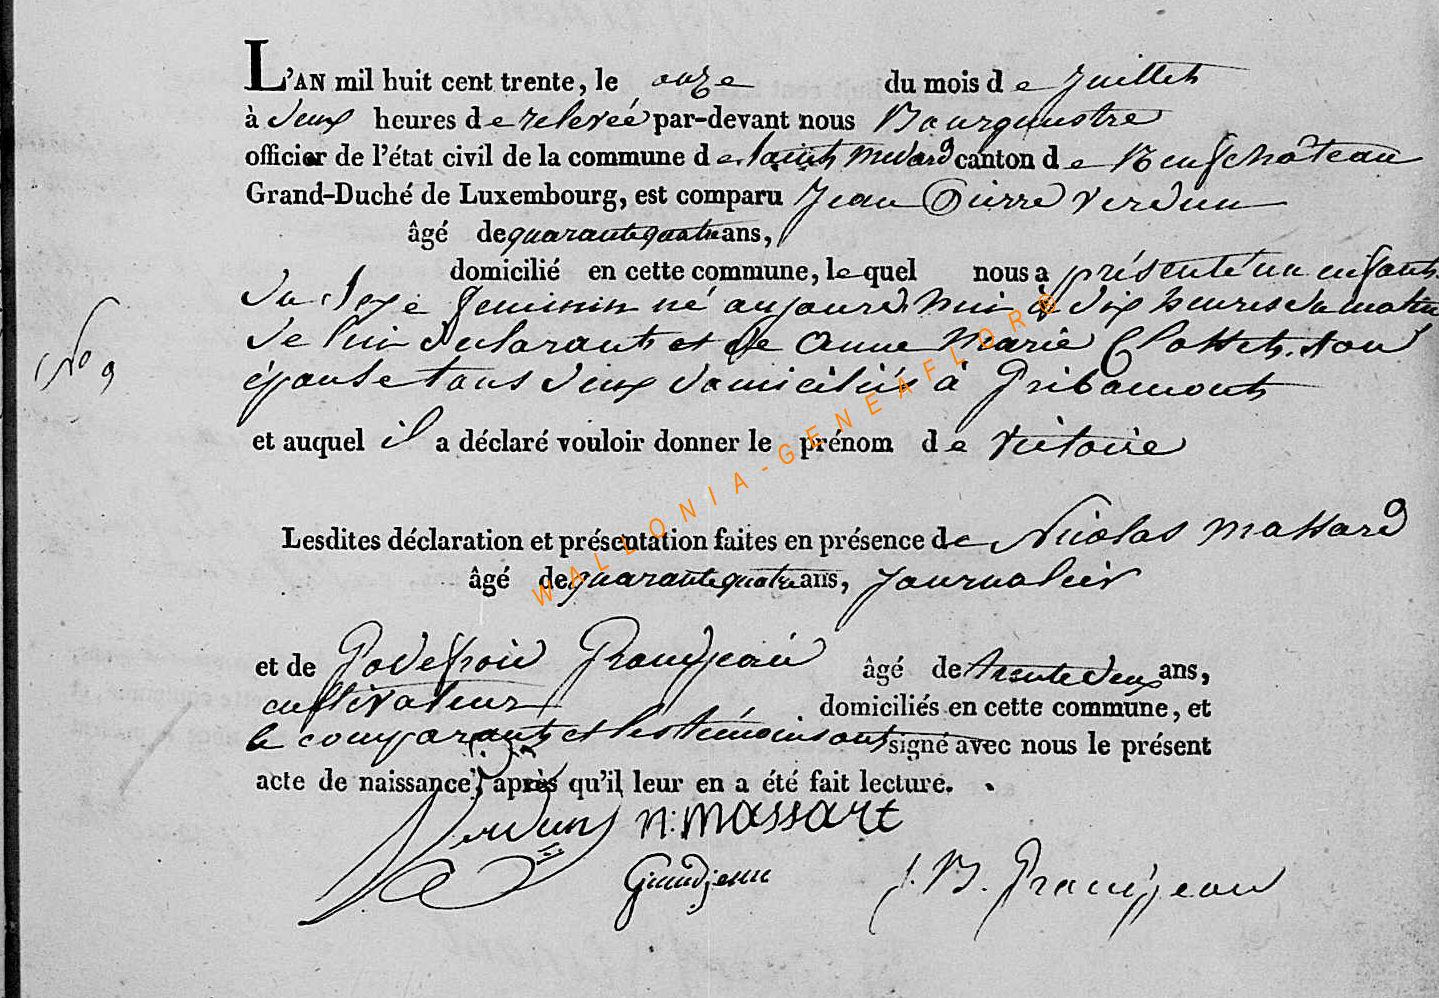 L'AN mil huit cent trente, le onze du mois de Juillet
à deux heures de relevée par-devant nous Bourguestre
officier de l'état civil de la commune de Saint Medard canton de Neufchâteau
Grand-Duché de Luxembourg, est comparu Jean Pierre Verdun
âgé de quarante quatre ans,
domicilié en cette commune, lequel nous a présenté un enfant
du sexe feminin né aujourd'hui à dix heures du matin
No 9
de lui declarant et de Anne Marie Clossets son
épouse tous deux domiciliés à Gribomont
et auquel il a déclaré vouloir donner le prénom de Victoire
Lesdites déclaration et présentation faites en présence de Nicolas Massard
âgé de quarante quatre ans, Journalier
et de Godefroid Grandjean âgé de trente deux ans,
cultivateur domiciliés en cette commune, et
le comparant et les témoins ont signé avec nous le présent
acte de naissance, après qu'il leur en a été fait lecture.
Verdun n: massart
Grandjean J. B. Grandjean
WALLONIA-GENEAFLORE